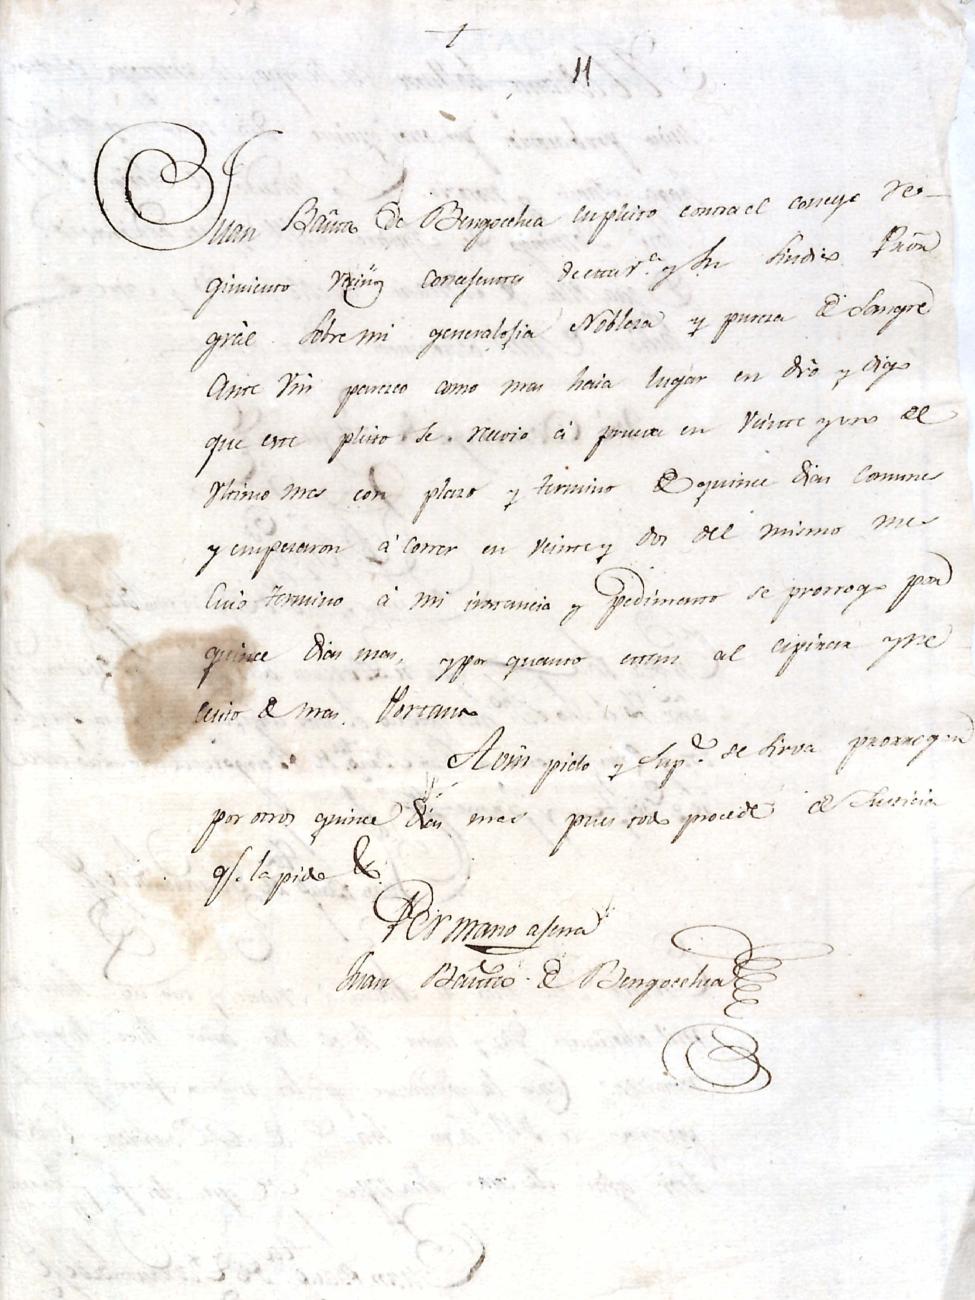 +
11
Juan Bauta de Bengoechea en pleito contra el consejo Re-
gimiento Vezinos Concejantes de esta va. y su Sindico Procor
gràl sobre mi generalosia Nobleza y pureza de Sangre
Ante Vm parezco como mas haia lugar en dro y digo
que este pleito se recivio á prueva en veinte y uno del
ultimo mes con plazo y termino de quince dias comunes
y empezaron á correr en veinte y dos del mismo mes
cuio termino á mi instancia y pedimento se prorrogo por
quince dias mas, y por quanto estan al espirar y ne
cesito de mas. Por tanto
A Vm pido y supco. se sirva prorrogar
por otros quince dias mas pues todo procede de Justicia
qe. la pido &
Juan Bauta. de Bengoechea